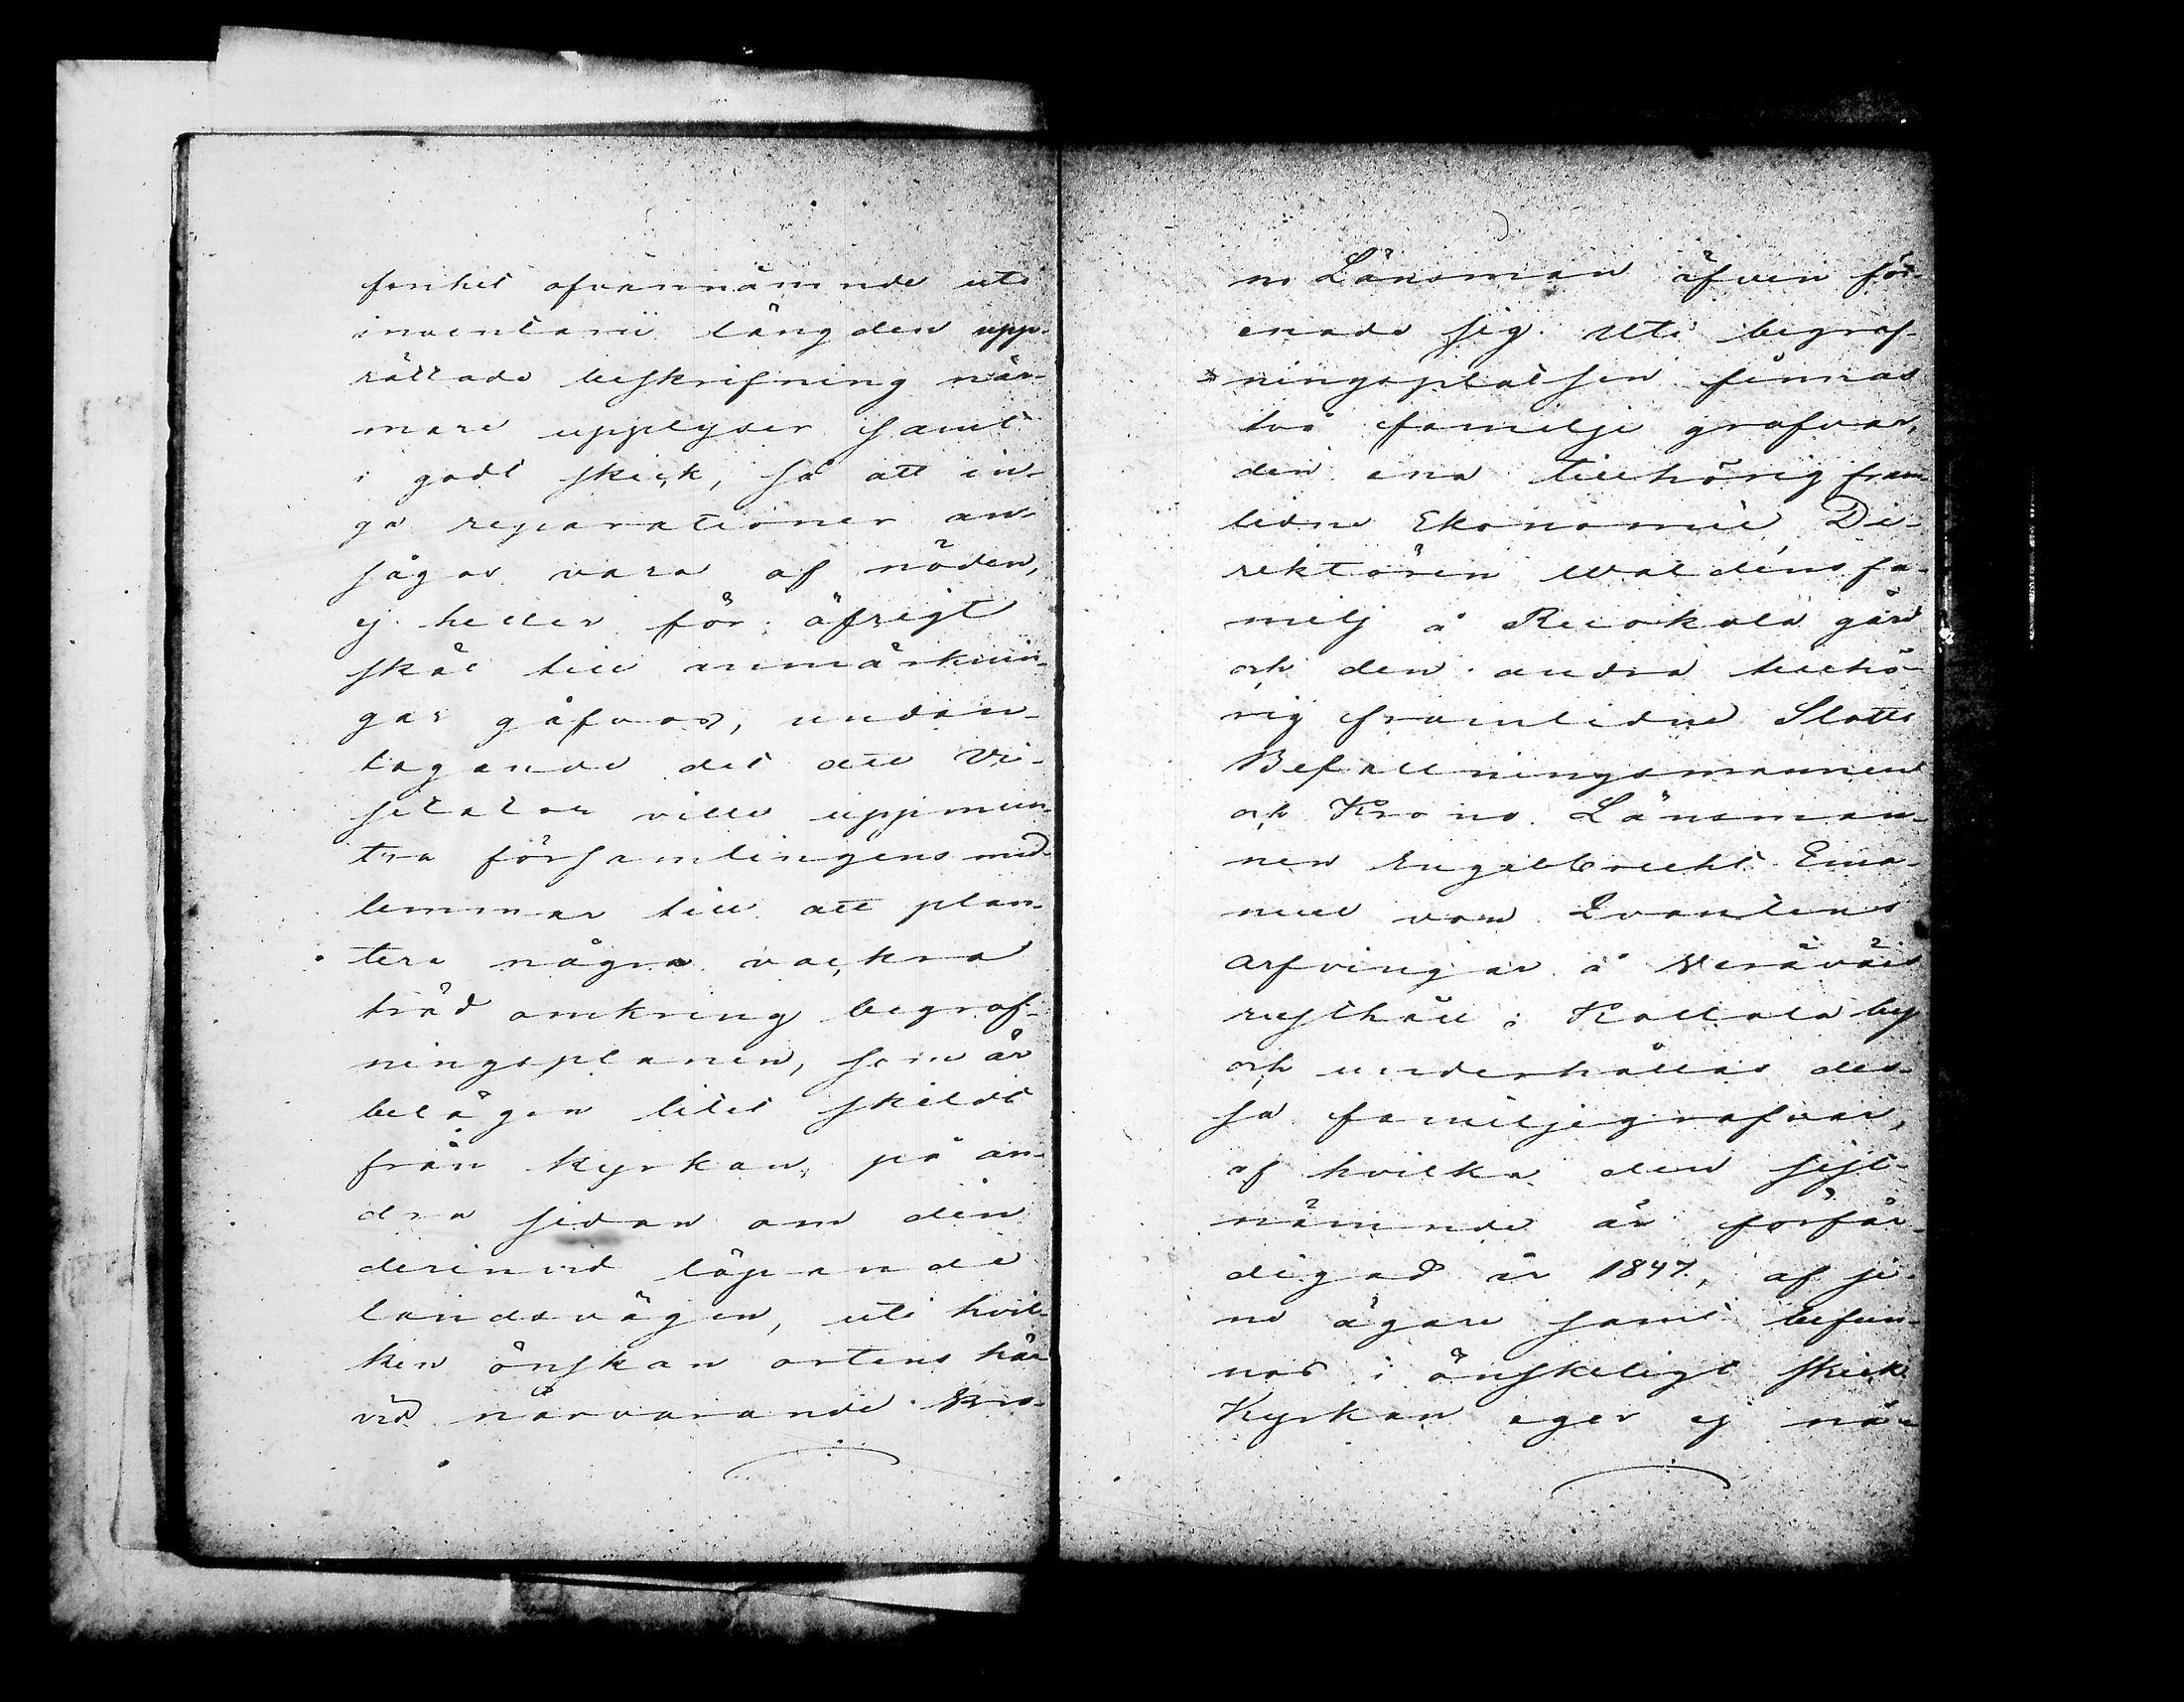 fenhet ofvannämnde uti
inventarii längden upp-
rättade beskrifning när-
mare upplyser samt
i godt skick, så att in-
ga reparationer an-
sågos vara af nöden,
ej heller för öfrigt
skäl till anmärknin-
gar gåfvos, undan-
tagande det att Vi-
sitator ville uppmun-
tra församlingens med-
lemmar till att plan-
tera några vackra
träd omkring begraf-
ningsplanen, som är
belägen litet skildt
från Kyrkan, på an-
dra sidan om den
derinvid löpande
landsvägen, uti hvil-
ken önskan ortens här
vid närvarande Kro-
no Länsman äfven för-
enade sig. Uti begraf-
ningsplatsen finnas
två familje grafvar,
den ena tillhörig fram-
lidne Ekonomie Di-
rektören Waldéns fa-
milj å gård
och den andra tillhö-
rig framlidne Slotts
Befallningsmannen
och Krono Länsman-
nen Engelbrecht Ema-
nuel von Qvantens
arfvingar å
rusthåll i Kallola by
och underhållas des-
sa familjegrafvar,
af hvilka den sist-
nämnde är förfär-
digad år 1847, af si-
na ägare samt befun-
nos i önskeligt skick
Kyrkan eger ej nå-